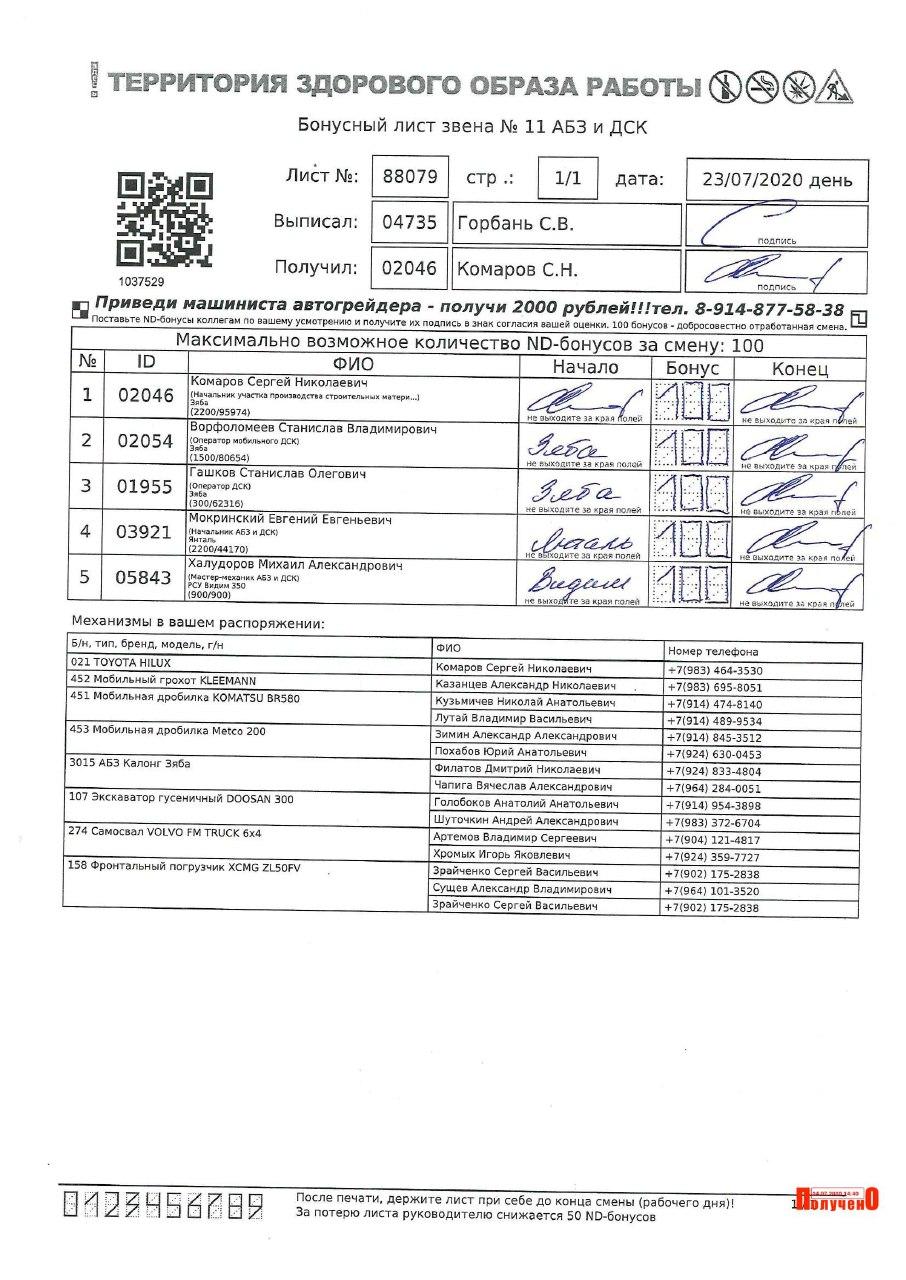 ТЕРРИТОРИЯ ЗДОРОВОГО ОБРАЗА РАБОТЫ
Бонусный лист звена № 11 АБЗ и ДСК
Лист №: 88079 стр .: 1/1 дата: 23/07/2020 день
Выписал: 04735 Горбань С.В.
подпись
Получил: 02046 Комаров С.Н.
подпись
1037529
Приведи машиниста автогрейдера - получи 2000 рублей!!!тел. 8-914-877-58-38
Поставьте ND-бонусы коллегам по вашему усмотрению и получите их подпись в знак согласия вашей оценки. 100 бонусов - добросовестно отработанная смена.
Максимально возможное количество ND-бонусов за смену: 100
№ ID ФИО Начало Бонус Конец
1 02046 Комаров Сергей Николаевич 100
(Начальник участка производства строительных матери...)
Зяба
(2200/95974)
не выходите за края полей не выходите за края полей
2 02054 Ворфоломеев Станислав Владимирович Зяба 100
(Оператор мобильного ДСК)
Зяба
(1500/80654)
не выходите за края полей не выходите за края полей
3 01955 Гашков Станислав Олегович Зяба 100
(Оператор ДСК)
Зяба
(300/62316)
не выходите за края полей не выходите за края полей
4 03921 Мокринский Евгений Евгеньевич Янталь 100
(Начальник АБЗ и ДСК)
Янталь
(2200/44170)
не выходите за края полей не выходите за края полей
5 05843 Халудоров Михаил Александрович Видим 100
(Мастер-механик АБЗ и ДСК)
РСУ Видим 350
(900/900)
не выходите за края полей не выходите за края полей
Механизмы в вашем распоряжении:
Б/н, тип, бренд, модель, г/н ФИО Номер телефона
021 TOYOTA HILUX Комаров Сергей Николаевич +7(983) 464-3530
452 Мобильный грохот KLEEMANN Казанцев Александр Николаевич +7(983) 695-8051
451 Мобильная дробилка KOMATSU BR580 Кузьмичев Николай Анатольевич +7(914) 474-8140
Лутай Владимир Васильевич +7(914) 489-9534
453 Мобильная дробилка Metco 200 Зимин Александр Александрович +7(914) 845-3512
Похабов Юрий Анатольевич +7(924) 630-0453
3015 АБЗ Калонг Зяба Филатов Дмитрий Николаевич +7(924) 833-4804
Чапига Вячеслав Александрович +7(964) 284-0051
107 Экскаватор гусеничный DOOSAN 300 Голобоков Анатолий Анатольевич +7(914) 954-3898
Шуточкин Андрей Александрович +7(983) 372-6704
274 Самосвал VOLVO FM TRUCK 6x4 Артемов Владимир Сергеевич +7(904) 121-4817
Хромых Игорь Яковлевич +7(924) 359-7727
158 Фронтальный погрузчик XCMG ZL50FV Зрайченко Сергей Васильевич +7(902) 175-2838
Сущев Александр Владимирович +7(964) 101-3520
Зрайченко Сергей Васильевич +7(902) 175-2838
0123456789
После печати, держите лист при себе до конца смены (рабочего дня)!
За потерю листа руководителю снижается 50 ND-бонусов
ПолученО